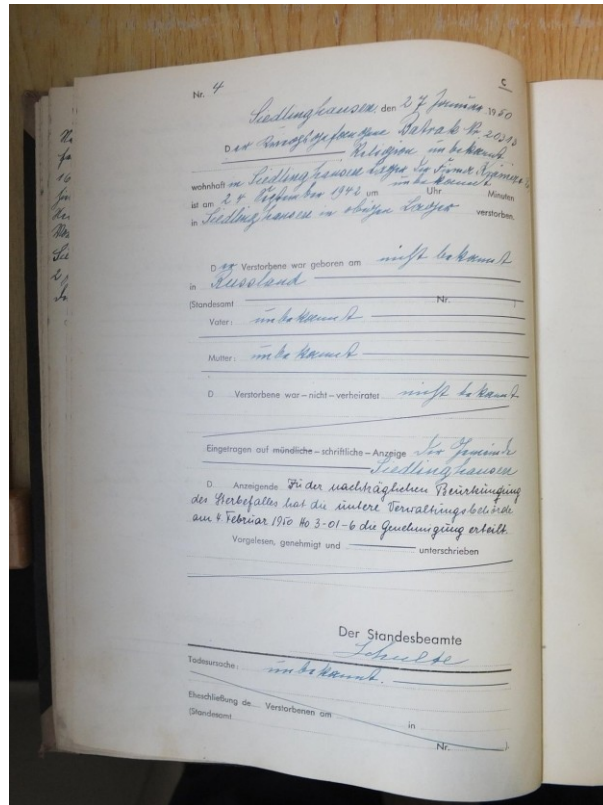 Nr. 4
C
Siedlinghausen, den 27 Januar 1950
D er Kriegsgefangene Batrak Nr. 20313
Religion unbekannt
wohnhaft in Siedlinghausen Lager der Firma
ist am 24 September 1942 um unbekannt Uhr Minuten
in Siedlinghausen in obigen Lager verstorben.
D er Verstorbene war geboren am nicht bekannt
in Russland
(Standesamt Nr. )
Vater: unbekannt
Mutter: unbekannt
D Verstorbene war – nicht – verheiratet nicht bekannt
Eingetragen auf mündliche – schriftliche – Anzeige der Gemeinde
Siedlinghausen
D Anzeigende Zu der nachträglichen Beurkundung
des Sterbefalles hat die untere Verwaltungsbehörde
am 4. Februar 1950 Ho 3-01-6 die Genehmigung erteilt.
Vorgelesen, genehmigt und unterschrieben
Der Standesbeamte
Schulte
Todesursache: unbekannt.
Eheschließung de Verstorbenen am in
(Standesamt Nr. ).